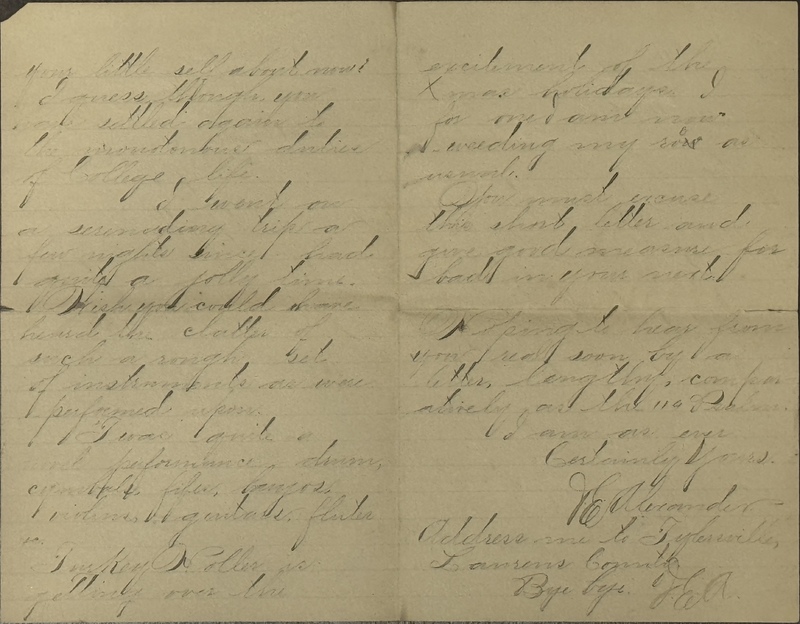 your little self about now?
I guess though you
are settled again to
the monotonous duties
of College life.
I went on
a serenading trip a
few nights since had
quite a jolly time.
Wish you could have
heard the clatter of
such a rough set
of instruments as were
performed upon.
Twas quite a
novel performance, drum,
cymbals, fifes, banjos,
violins, guitars, flutes
&c.
Turkey Holler is
getting over the
excitement of the
Xmas holidays. I
for one am now
weeding my row as
usual.
You must excuse
this short letter and
give good measure for
bad in your next.
Hoping to hear from
you real soon by a
letter, lengthy, compar
atively, as the 119 Psalm.
I am as ever
Certainly Yours.
J E Alexander
Address me to Tylersville,
Laurens County.
Bye bye. J.E.A.